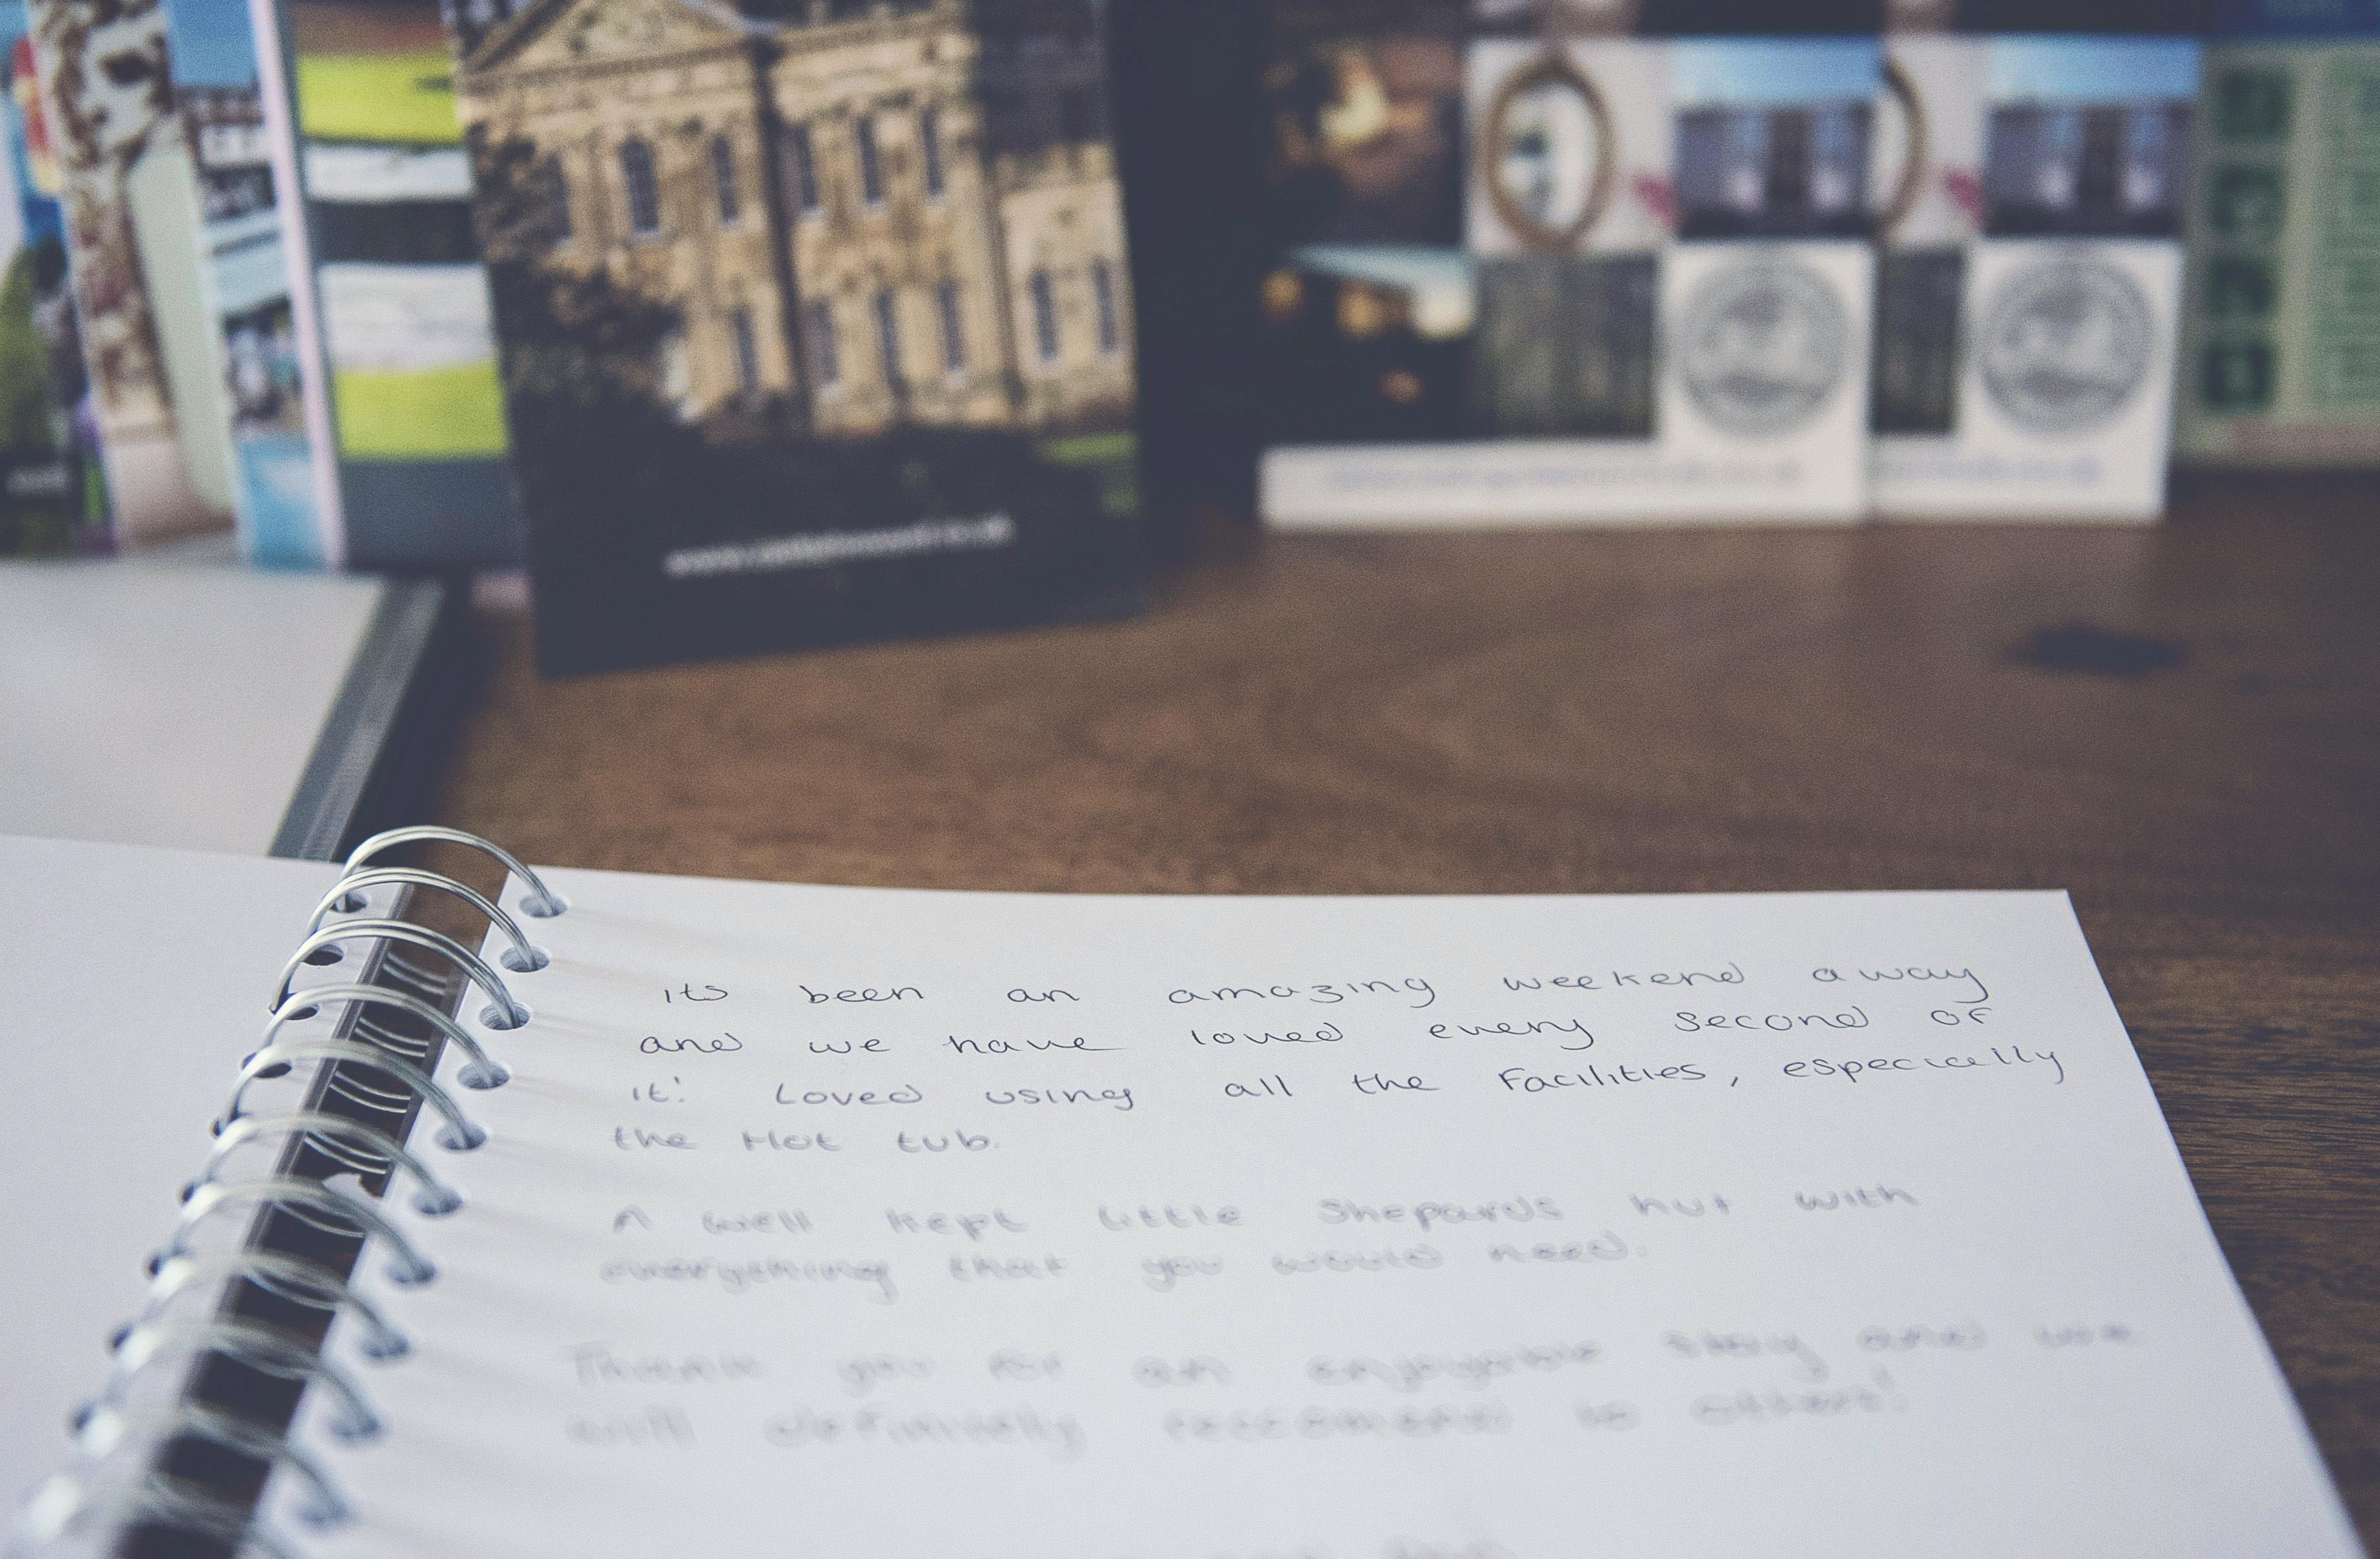 its been an amazing weekend away
and we have loved every second of
it! Loved using all the Facilities, especially
the Hot tub.
A well kept little Shepards hut with
everything that you would need.
Thank you for an enjoyable stay and we
will definitely reccomend to others!